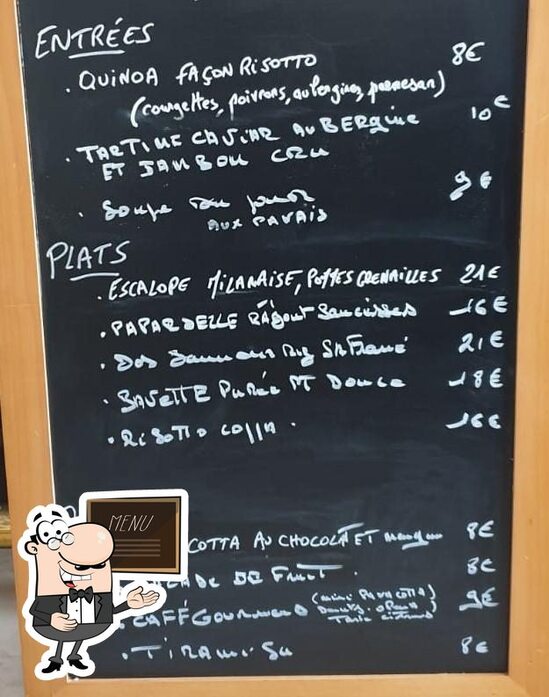 ENTRÉES
. QUINOA FAÇON RISOTTO 8€
(courgettes, poivrons, aubergines, parmesan)
. TARTINE CAVIAR AUBERGINE 10€
ET JAMBON CRU
. Soupe du jour 9€
AUX
PLATS
. ESCALOPE MILANAISE, POMMES GRENAILLES 21€
. PAPARDELLE RÂGOUT Saucisses 16€
. Dos Saumon Riz 21€
. BAVETTE PURÉE PT DOUCE 18€
. RISOTTO 16€
MENU
COTTA AU CHOCOLAT ET 8€
DE FRUIT. 8€
CAFÉ GOURMAND (mini PANA COTTA 9€
. TIRAMISU 8€